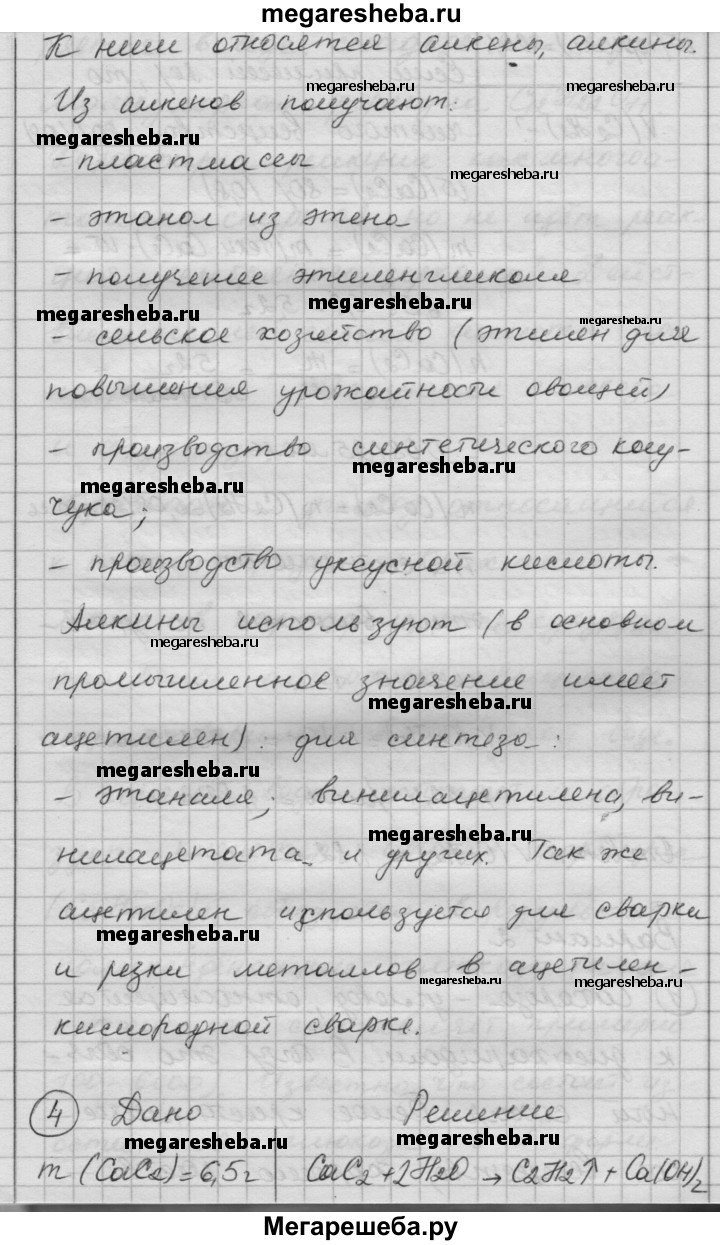 megaresheba.ru
К ним относятся алкены, алкины.
megaresheba.ru megaresheba.ru
Из алкенов получают:
megaresheba.ru
- пластмассы
megaresheba.ru
- этанол из этена
- получение этиленгликоля
megaresheba.ru megaresheba.ru megaresheba.ru
- сельское хозяйство (этилен для
повышения урожайности овощей)
- производство синтетического кау-
megaresheba.ru megaresheba.ru
чука;
- производство уксусной кислоты.
Алкины используют (в основном
megaresheba.ru
промышленное значение имеет
megaresheba.ru
ацетилен): для синтеза:
megaresheba.ru
- этаналя; винилацетилена, ви-
megaresheba.ru
нилацетата и других. Так же
ацетилен используется для сварки
megaresheba.ru
и резки металлов в ацетилен-
megaresheba.ru megaresheba.ru
кислородной сварке.
4 Дано Решение
megaresheba.ru megaresheba.ru
m (CaC2) = 6,5г CaC2 + 2H2O → C2H2↑ + Ca(OH)2
Мегарешеба.ру